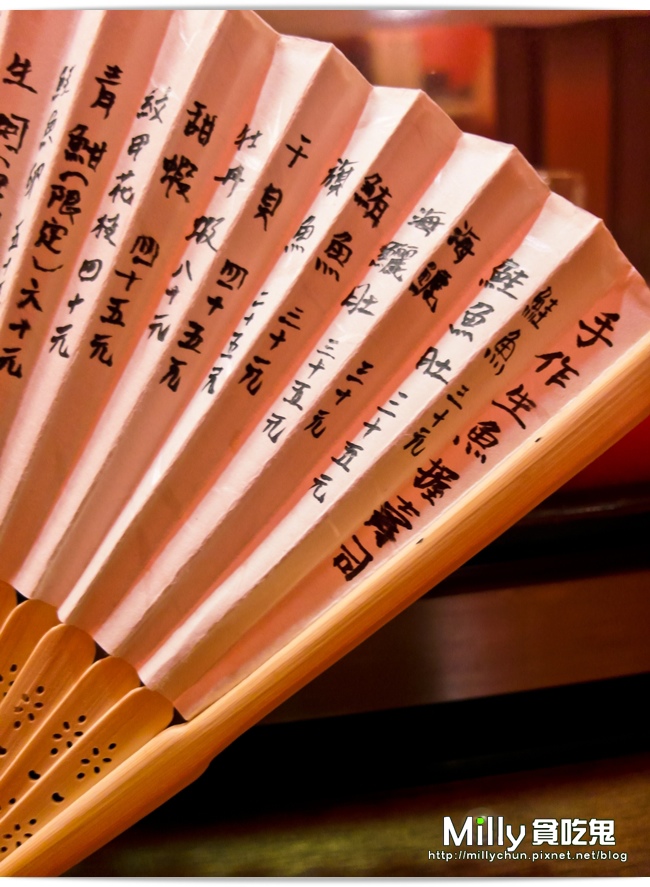 手作生魚握壽司
鮭魚 三十元
鮭魚肚 三十五元
海鱺 三十元
海鱺肚 三十五元
鮪魚 三十元
旗魚 二十五元
干貝 四十五元
牡丹蝦 八十元
甜蝦 四十五元
紋甲花枝 四十元
青魽(限定)六十元
魚卵 五十
生
Milly 貪吃鬼
http://millychun.pixnet.net/blog